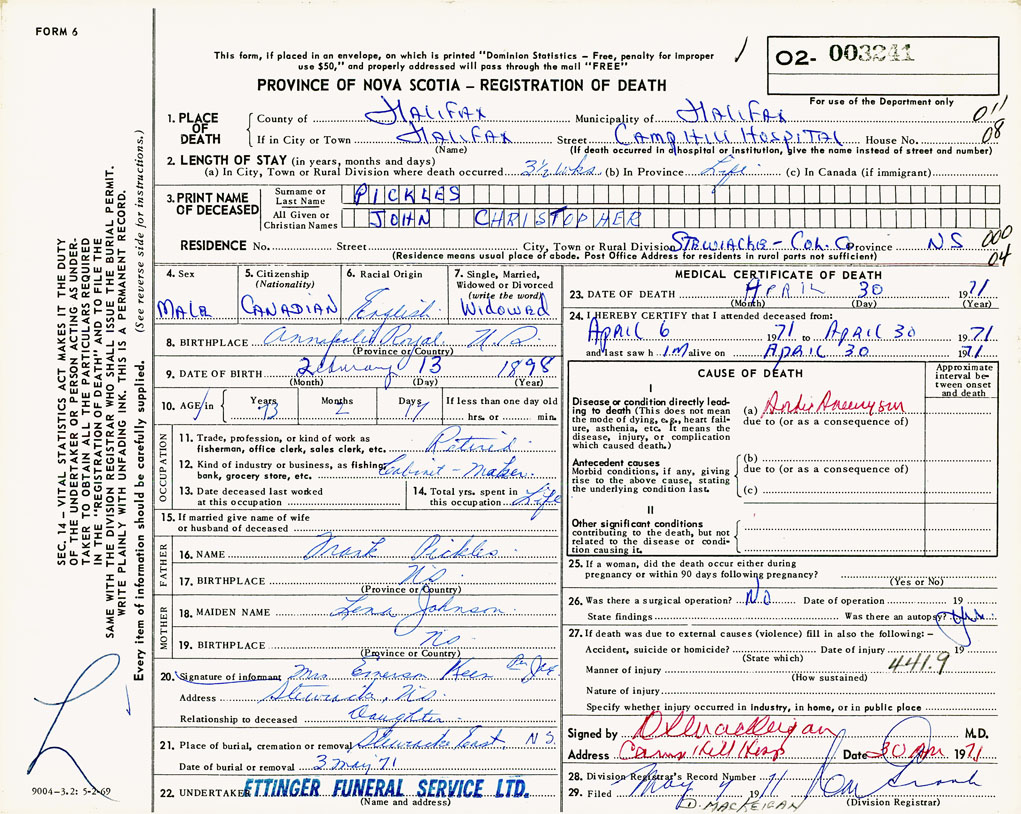 FORM 6
This form, if placed in an envelope, on which is printed "Dominion Statistics – Free, penalty for improper
use $50," and properly addressed will pass through the mail "FREE"
PROVINCE OF NOVA SCOTIA – REGISTRATION OF DEATH
02- 003241
For use of the Department only
011
08
1. PLACE OF DEATH
County of HALIFAX Municipality of HALIFAX
If in City or Town HALIFAX Street CAMP HILL HOSPITAL House No.
(Name) (If death occurred in a hospital or institution, give the name instead of street and number)
2. LENGTH OF STAY (in years, months and days)
(a) In City, Town or Rural Division where death occurred 3½ wks (b) In Province Life (c) In Canada (if immigrant)
3. PRINT NAME OF DECEASED
Surname or Last Name PICKLES
All Given or Christian Names JOHN CHRISTOPHER
RESIDENCE No. Street City, Town or Rural Division STEWIACKE - COL. CO Province NS
000
04
(Residence means usual place of abode. Post Office Address for residents in rural parts not sufficient)
4. Sex
MALE
5. Citizenship
(Nationality)
CANADIAN
6. Racial Origin
English
7. Single, Married,
Widowed or Divorced
(write the word)
WIDOWED
8. BIRTHPLACE Annapolis Royal N.S.
(Province or Country)
9. DATE OF BIRTH February 13 1898
(Month) (Day) (Year)
10. AGE in Years 73 Months 2 Days 17 If less than one day old
hrs. or min.
OCCUPATION
11. Trade, profession, or kind of work as
fisherman, office clerk, sales clerk, etc. Retired
12. Kind of industry or business, as fishing,
bank, grocery store, etc. Cabinet - Maker.
13. Date deceased last worked
at this occupation
14. Total yrs. spent in
this occupation Life
15. If married give name of wife
or husband of deceased
FATHER
16. NAME Mark Pickles
17. BIRTHPLACE N.S.
(Province or Country)
MOTHER
18. MAIDEN NAME Lena Johnson
19. BIRTHPLACE N.S.
(Province or Country)
20. Signature of informant Mrs Emerson Keen Per
Address Stewiacke, N.S.
Relationship to deceased Daughter
21. Place of burial, cremation or removal Stewiacke East, N.S.
Date of burial or removal 3 May 71
22. UNDERTAKER ETTINGER FUNERAL SERVICE LTD.
(Name and address)
MEDICAL CERTIFICATE OF DEATH
23. DATE OF DEATH APRIL 30 1971
(Month) (Day) (Year)
24. I HEREBY CERTIFY that I attended deceased from:
APRIL 6 1971 to APRIL 30 1971
and last saw h IM alive on APRIL 30 1971
CAUSE OF DEATH
Approximate
interval be-
tween onset
and death
I
Disease or condition directly lead-
ing to death (This does not mean
the mode of dying, e.g., heart fail-
ure, asthenia, etc. It means the
disease, injury, or complication
which caused death.)
(a) Aortic Aneurysm
due to (or as a consequence of)
Antecedent causes
Morbid conditions, if any, giving
rise to the above cause, stating
the underlying condition last.
(b)
due to (or as a consequence of)
(c)
II
Other significant conditions
contributing to the death, but not
related to the disease or condi-
tion causing it.
25. If a woman, did the death occur either during
pregnancy or within 90 days following pregnancy?
(Yes or No)
26. Was there a surgical operation? NO Date of operation 19
State findings Was there an autopsy?
27. If death was due to external causes (violence) fill in also the following: –
Accident, suicide or homicide? Date of injury 19
(State which)
Manner of injury 441.9
(How sustained)
Nature of injury
Specify whether injury occurred in industry, in home, or in public place
Signed by D MacKeigan M.D.
Address Camp Hill Hosp Date 30 Apr 1971
28. Division Registrar's Record Number
29. Filed May 4 1971
(Division Registrar)
D. MACKEIGAN
SEC. 14 – VITAL STATISTICS ACT MAKES IT THE DUTY
OF THE UNDERTAKER OR PERSON ACTING AS UNDER-
TAKER TO OBTAIN ALL THE PARTICULARS REQUIRED
IN THE "REGISTRATION OF DEATH" AND TO FILE THE
SAME WITH THE DIVISION REGISTRAR WHO SHALL ISSUE THE BURIAL PERMIT.
WRITE PLAINLY WITH UNFADING INK. THIS IS A PERMANENT RECORD.
Every item of information should be carefully supplied. (See reverse side for instructions.)
9004-3.2: 5-2-69